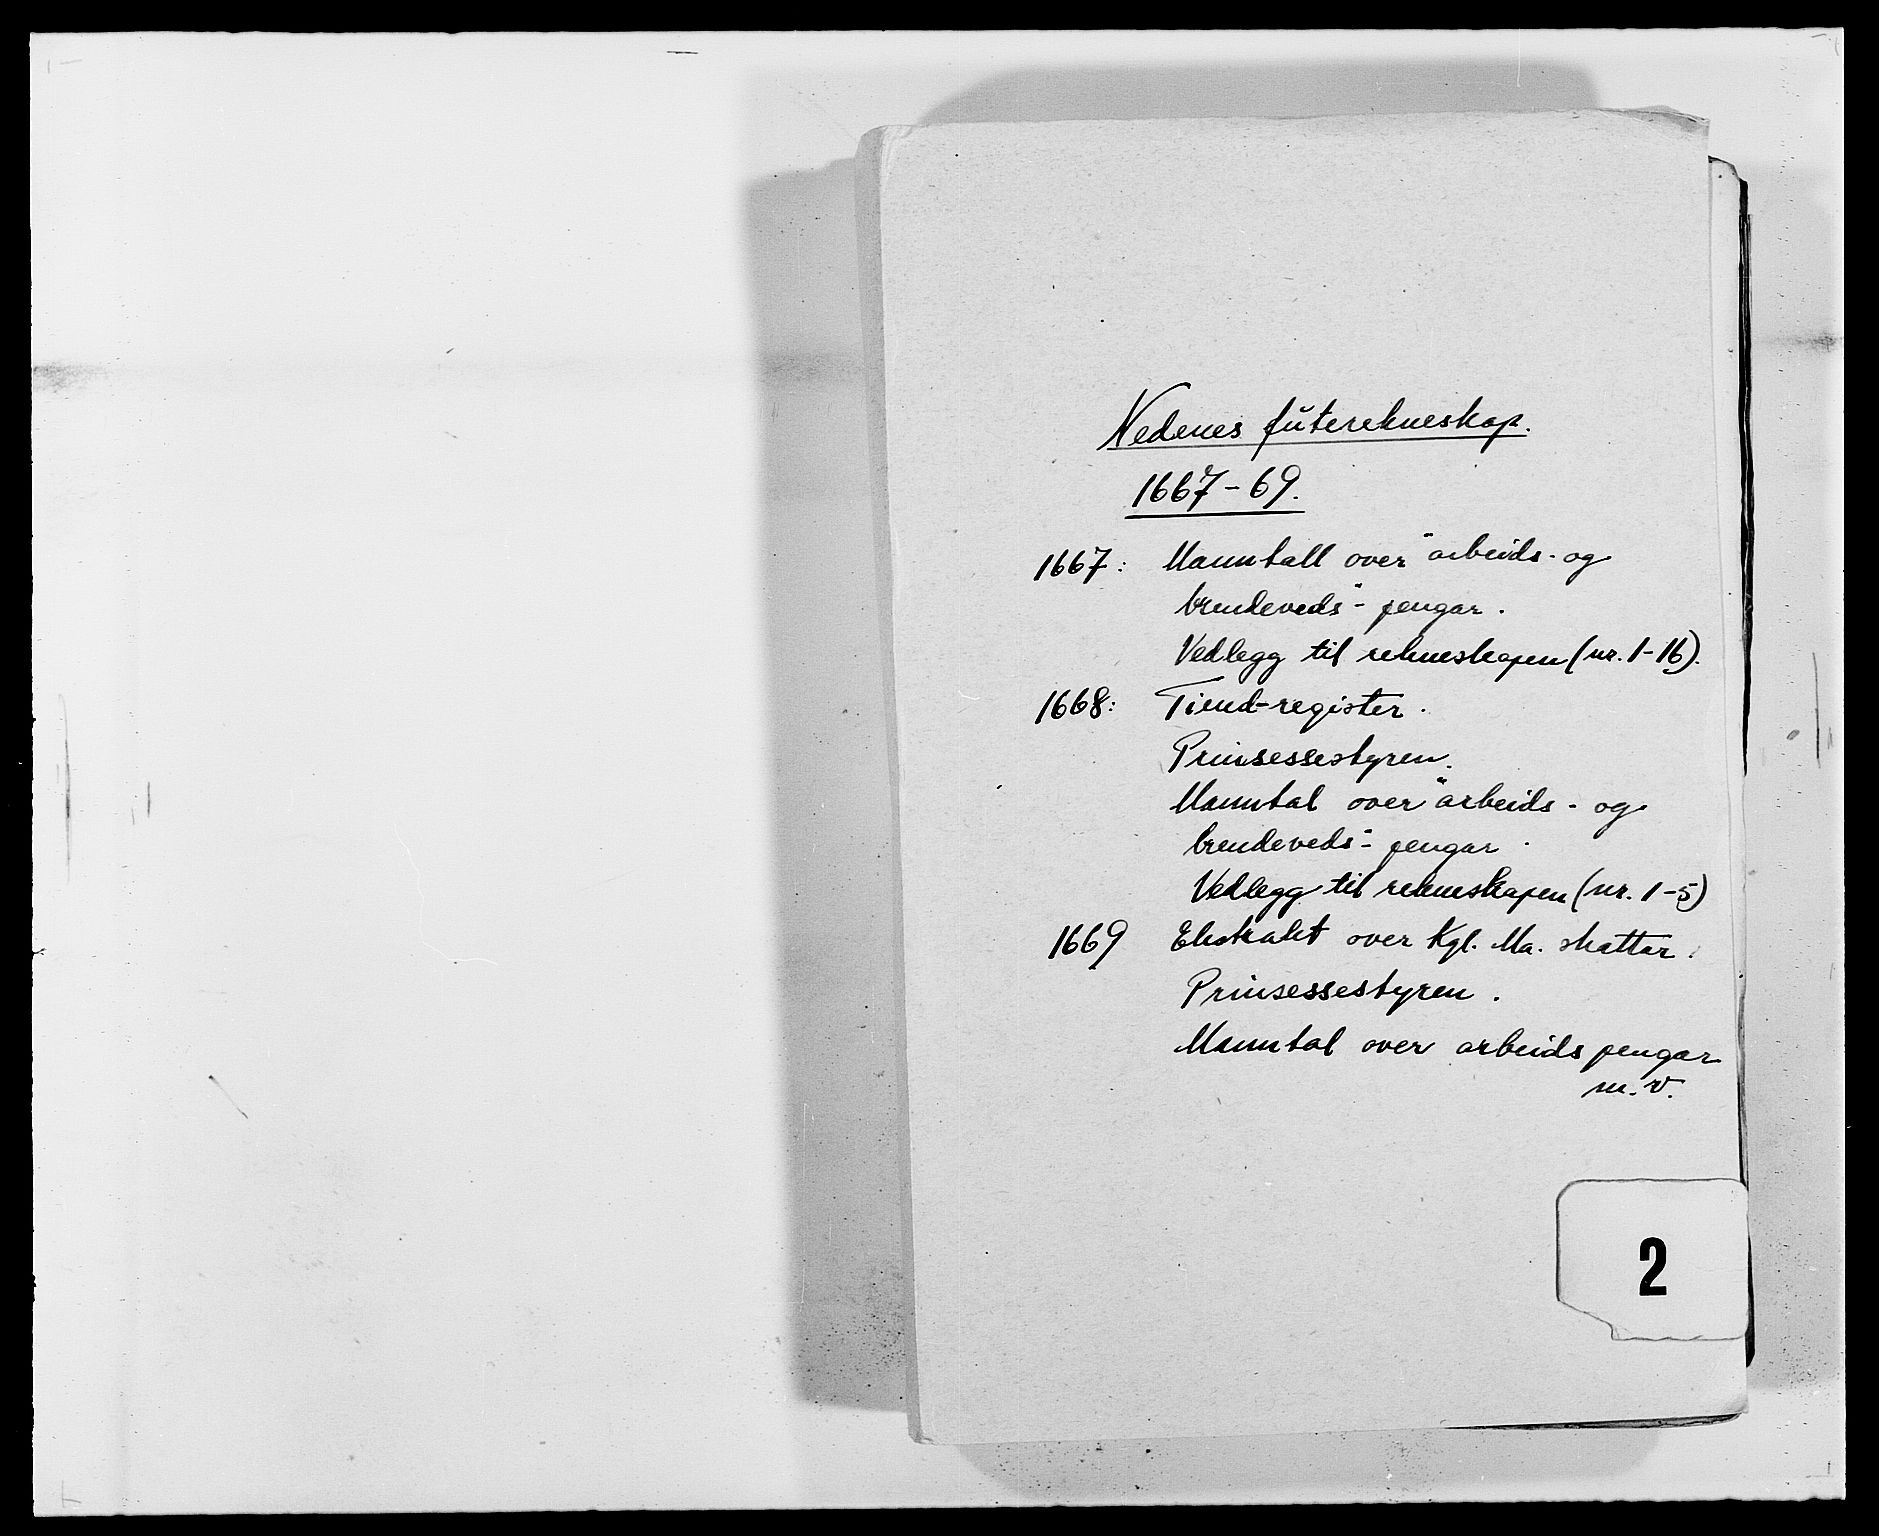 Nedenes futerekneskap.
1667-69.
1667: Manntall over "arbeids- og
brendeveds"- pengar.
Vedlegg til rekneskapen (nr. 1-16).
1668: Tiend-register.
Prinsessestyren.
Manntal over "arbeids- og
brendeveds"- pengar.
Vedlegg til rekneskapen (nr. 1-5)
1669 Ekstrakt over Kgl. Ma. skattar.
Prinsessestyren.
Manntal over arbeidspengar
m.v.
2